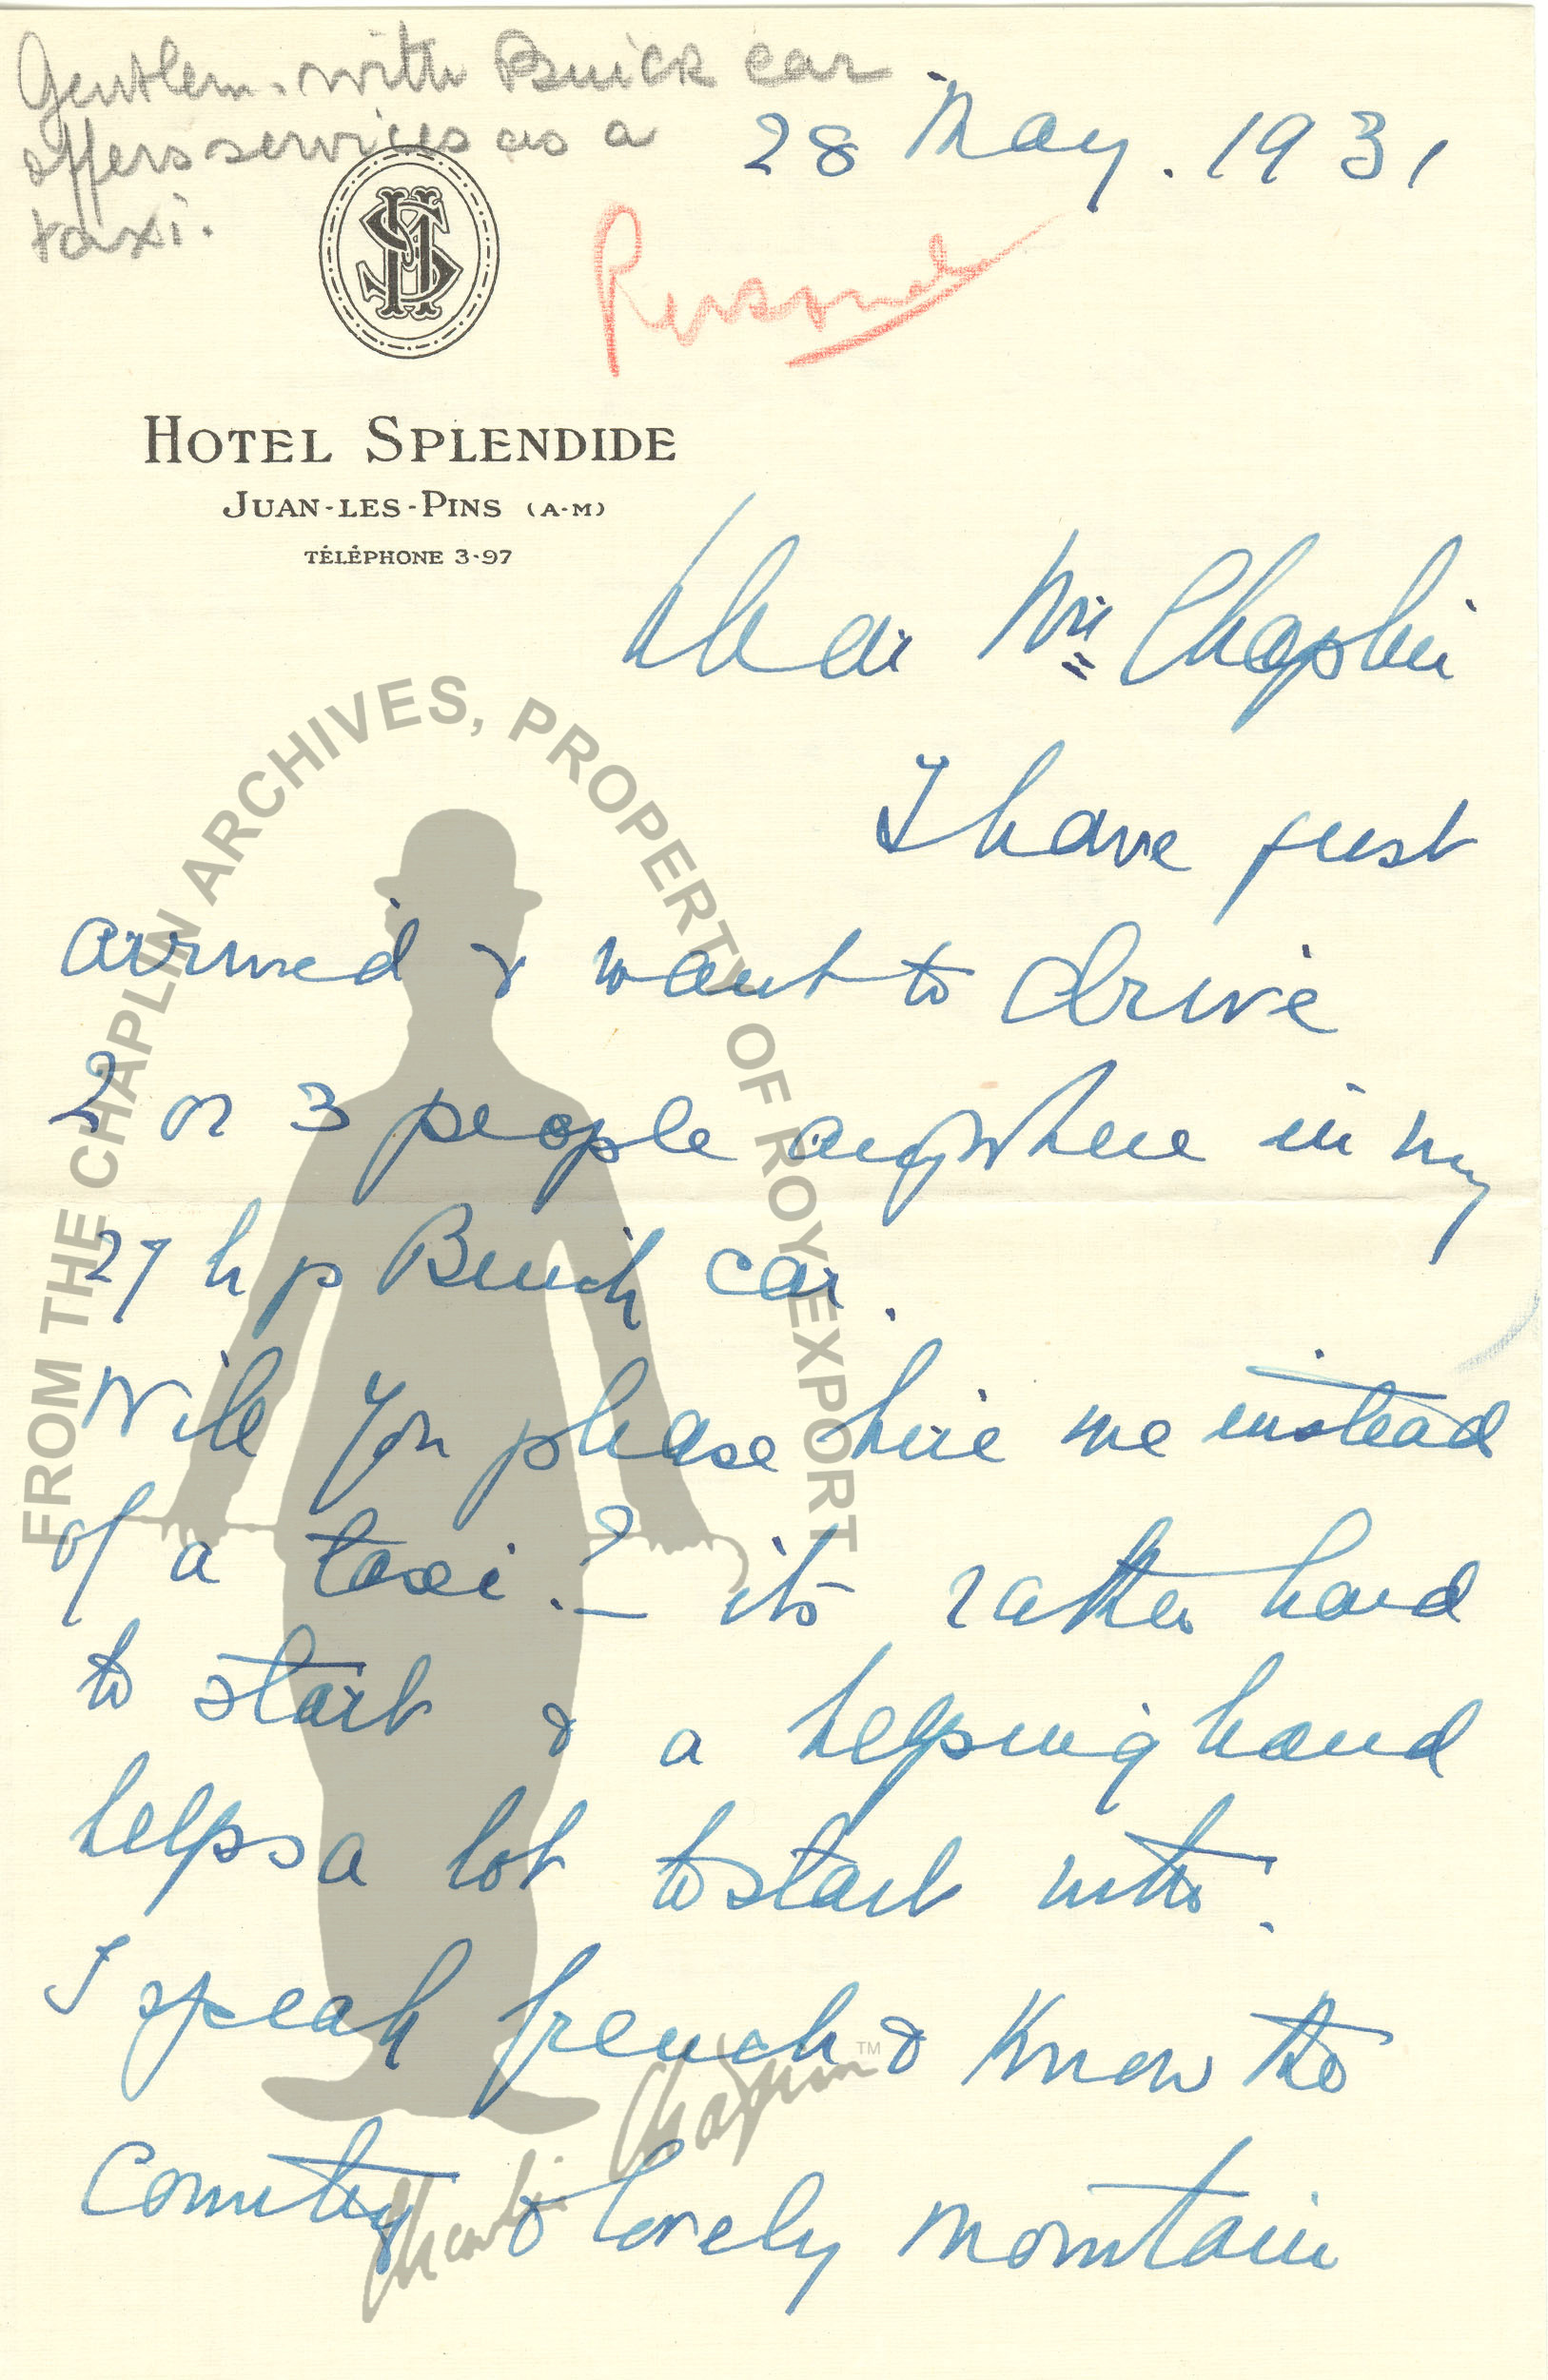 Gentlem. with Buick car
offers services as a
taxi.
28 May. 1931
HS
HOTEL SPLENDIDE
JUAN-LES-PINS (A-M)
TÉLÉPHONE 3-97
Dear Mr Chaplin
I have just
arrived & want to drive
2 or 3 people anywhere in my
27 hp Buick car.
Will you please hire me instead
of a taxi? — its rather hard
to start & a helping hand
helps a lot to start with.
I speak french & know the
country & lovely mountain
FROM THE CHAPLIN ARCHIVES, PROPERTY OF ROY EXPORT
Charlie Chaplin ™